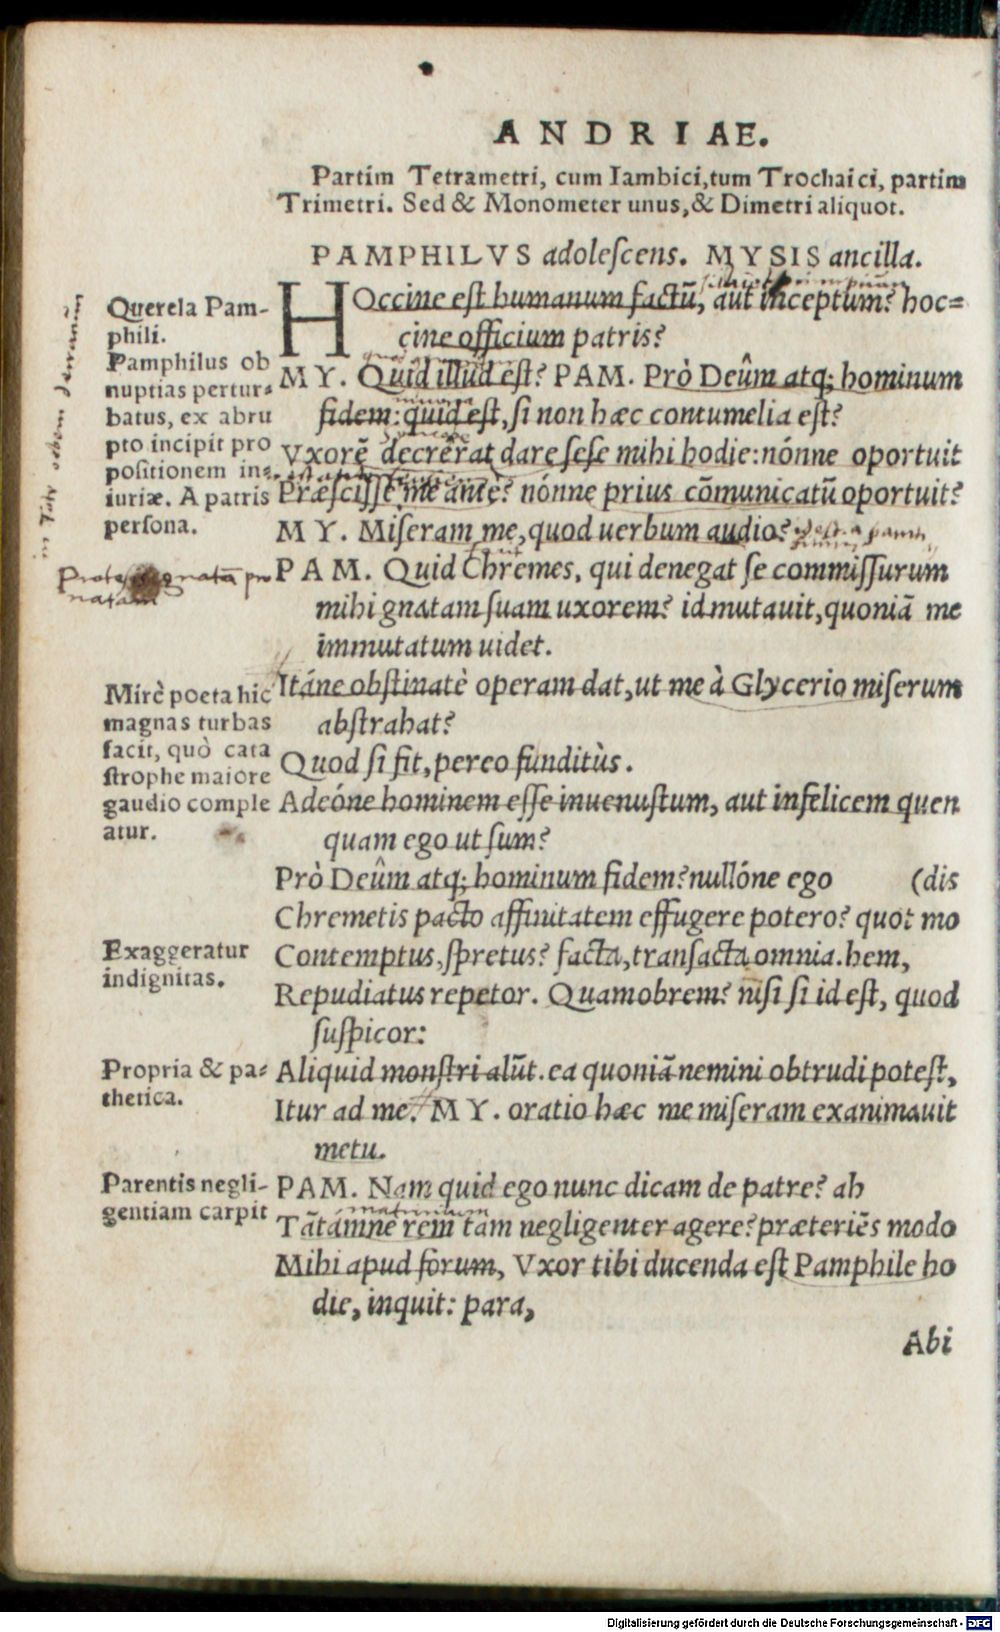 ANDRIAE.
Partim Tetrametri, cum Iambici, tum Trochaici, partim
Trimetri. Sed & Monometer unus, & Dimetri aliquot.
PAMPHILVS adoleſcens. MYSIS ancilla.
Querela Pam-
phili.
Pamphilus ob
nuptias pertur-
batus, ex abru
pto incipit pro
poſitionem in-
iuriæ. A patris
perſona.
HOccine eſt humanum factū, aut inceptum? hoc-
cine officium patris?
MY. Quid illud eſt? PAM. Prò Deûm atq; hominum
fidem: quid eſt, ſi non hæc contumelia eſt?
Vxorē decrêrat dare ſeſe mihi hodie: nónne oportuit
Præſciſſe me ante? nónne prius cōmunicatū oportuit?
MY. Miſeram me, quod uerbum audio?
PAM. Quid Chremes, qui denegat ſe commiſſurum
mihi gnatam ſuam uxorem? id mutauit, quoniā me
immutatum uidet.
Mirè poeta hic
magnas turbas
facit, quò cata
ſtrophe maiore
gaudio comple
atur.
Itáne obſtinatè operam dat, ut me à Glycerio miſerum
abſtrahat?
Quod ſi fit, pereo funditùs.
Adeóne hominem eſſe inuenuſtum, aut infelicem quen
quam ego ut ſum?
Prò Deûm atq; hominum fidem? nullóne ego (dis
Chremetis pacto affinitatem effugere potero? quot mo
Exaggeratur
indignitas.
Contemptus, ſpretus? facta, tranſacta omnia. hem,
Repudiatus repetor. Quamobrem? niſi ſi id eſt, quod
ſuſpicor:
Propria & pa-
thetica.
Aliquid monſtri alūt. ea quoniā nemini obtrudi poteſt,
Itur ad me. MY. oratio hæc me miſeram exanimauit
metu.
Parentis negli-
gentiam carpit
PAM. Nam quid ego nunc dicam de patre? ah
Tātámne rem tam negligenter agere? præteriēs modo
Mihi apud forum, Vxor tibi ducenda eſt Pamphile ho
die, inquit: para,
Abi
Digitalisierung gefördert durch die Deutsche Forschungsgemeinschaft - DFG